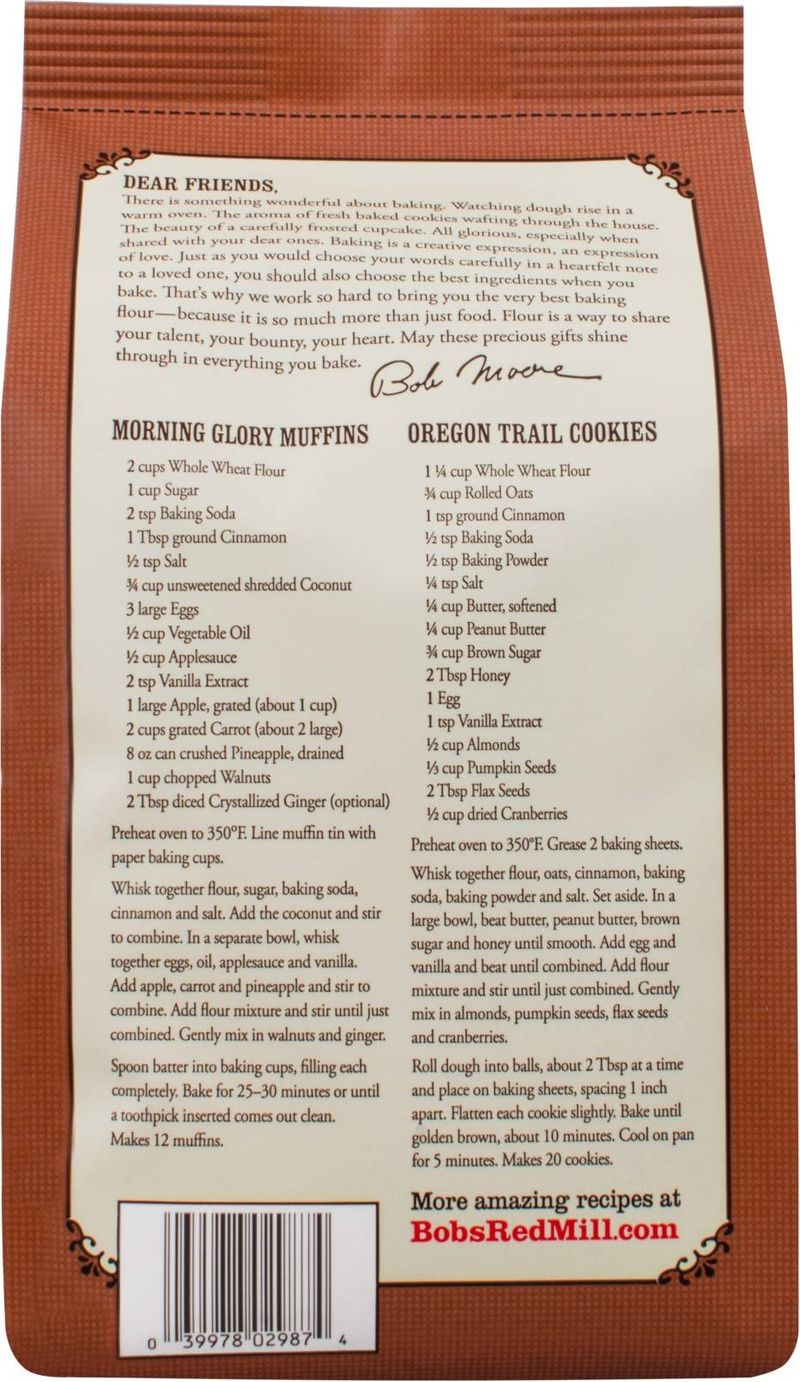 DEAR FRIENDS,
There is something wonderful about baking. Watching dough rise in a
warm oven. The aroma of fresh baked cookies wafting through the house.
The beauty of a carefully frosted cupcake. All glorious, especially when
shared with your dear ones. Baking is a creative expression, an expression
of love. Just as you would choose your words carefully in a heartfelt note
to a loved one, you should also choose the best ingredients when you
bake. That's why we work so hard to bring you the very best baking
flour—because it is so much more than just food. Flour is a way to share
your talent, your bounty, your heart. May these precious gifts shine
through in everything you bake.
Bob Moore
MORNING GLORY MUFFINS
2 cups Whole Wheat Flour
1 cup Sugar
2 tsp Baking Soda
1 Tbsp ground Cinnamon
½ tsp Salt
¾ cup unsweetened shredded Coconut
3 large Eggs
½ cup Vegetable Oil
½ cup Applesauce
2 tsp Vanilla Extract
1 large Apple, grated (about 1 cup)
2 cups grated Carrot (about 2 large)
8 oz can crushed Pineapple, drained
1 cup chopped Walnuts
2 Tbsp diced Crystallized Ginger (optional)
Preheat oven to 350°F. Line muffin tin with
paper baking cups.
Whisk together flour, sugar, baking soda,
cinnamon and salt. Add the coconut and stir
to combine. In a separate bowl, whisk
together eggs, oil, applesauce and vanilla.
Add apple, carrot and pineapple and stir to
combine. Add flour mixture and stir until just
combined. Gently mix in walnuts and ginger.
Spoon batter into baking cups, filling each
completely. Bake for 25–30 minutes or until
a toothpick inserted comes out clean.
Makes 12 muffins.
OREGON TRAIL COOKIES
1 ¼ cup Whole Wheat Flour
¾ cup Rolled Oats
1 tsp ground Cinnamon
½ tsp Baking Soda
½ tsp Baking Powder
¼ tsp Salt
¼ cup Butter, softened
¼ cup Peanut Butter
¾ cup Brown Sugar
2 Tbsp Honey
1 Egg
1 tsp Vanilla Extract
½ cup Almonds
⅓ cup Pumpkin Seeds
2 Tbsp Flax Seeds
½ cup dried Cranberries
Preheat oven to 350°F. Grease 2 baking sheets.
Whisk together flour, oats, cinnamon, baking
soda, baking powder and salt. Set aside. In a
large bowl, beat butter, peanut butter, brown
sugar and honey until smooth. Add egg and
vanilla and beat until combined. Add flour
mixture and stir until just combined. Gently
mix in almonds, pumpkin seeds, flax seeds
and cranberries.
Roll dough into balls, about 2 Tbsp at a time
and place on baking sheets, spacing 1 inch
apart. Flatten each cookie slightly. Bake until
golden brown, about 10 minutes. Cool on pan
for 5 minutes. Makes 20 cookies.
More amazing recipes at
BobsRedMill.com
0 39978 02987 4